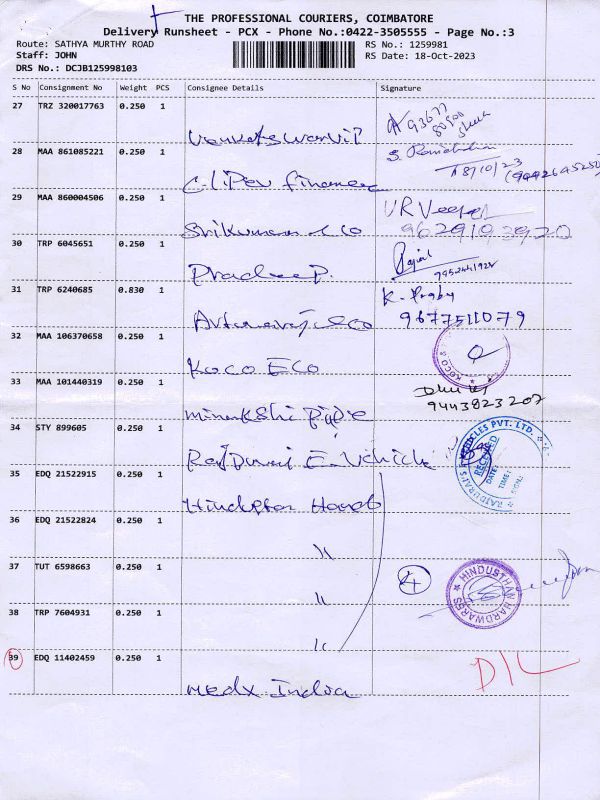 THE PROFESSIONAL COURIERS, COIMBATORE
Delivery Runsheet - PCX - Phone No.:0422-3505555 - Page No.:3
Route: SATHYA MURTHY ROAD
RS No.: 1259981
Staff: JOHN
RS Date: 18-Oct-2023
DRS No.: DCJB125998103
S No Consignment No Weight PCS Consignee Details Signature
27 TRZ 320017763 0.250 1
93677
28 MAA 861085221 0.250 1
Finance
29 MAA 860004506 0.250 1
URVeera
Srikumaran & Co
9629193920
30 TRP 6045651 0.250 1
Pradeep.
9952441928
31 TRP 6240685 0.830 1
K. Prabu
9677511079
32 MAA 106370658 0.250 1
Koco Eco
KOCO'S
33 MAA 101440319 0.250 1
9443823207
minakshi Pipe
34 STY 899605 0.250 1
RAJDURAI E VEHICLES PVT. LTD
RECEIVED
DATE:
TIME:
SIGN:
Rajdurai E. Vehicle
35 EDQ 21522915 0.250 1
Hindustan Hardb
36 EDQ 21522824 0.250 1
"
37 TUT 6598663 0.250 1
4
HINDUSTHAN HARDWARSS
"
38 TRP 7604931 0.250 1
"
39 EDQ 11402459 0.250 1
D/L
Medx India